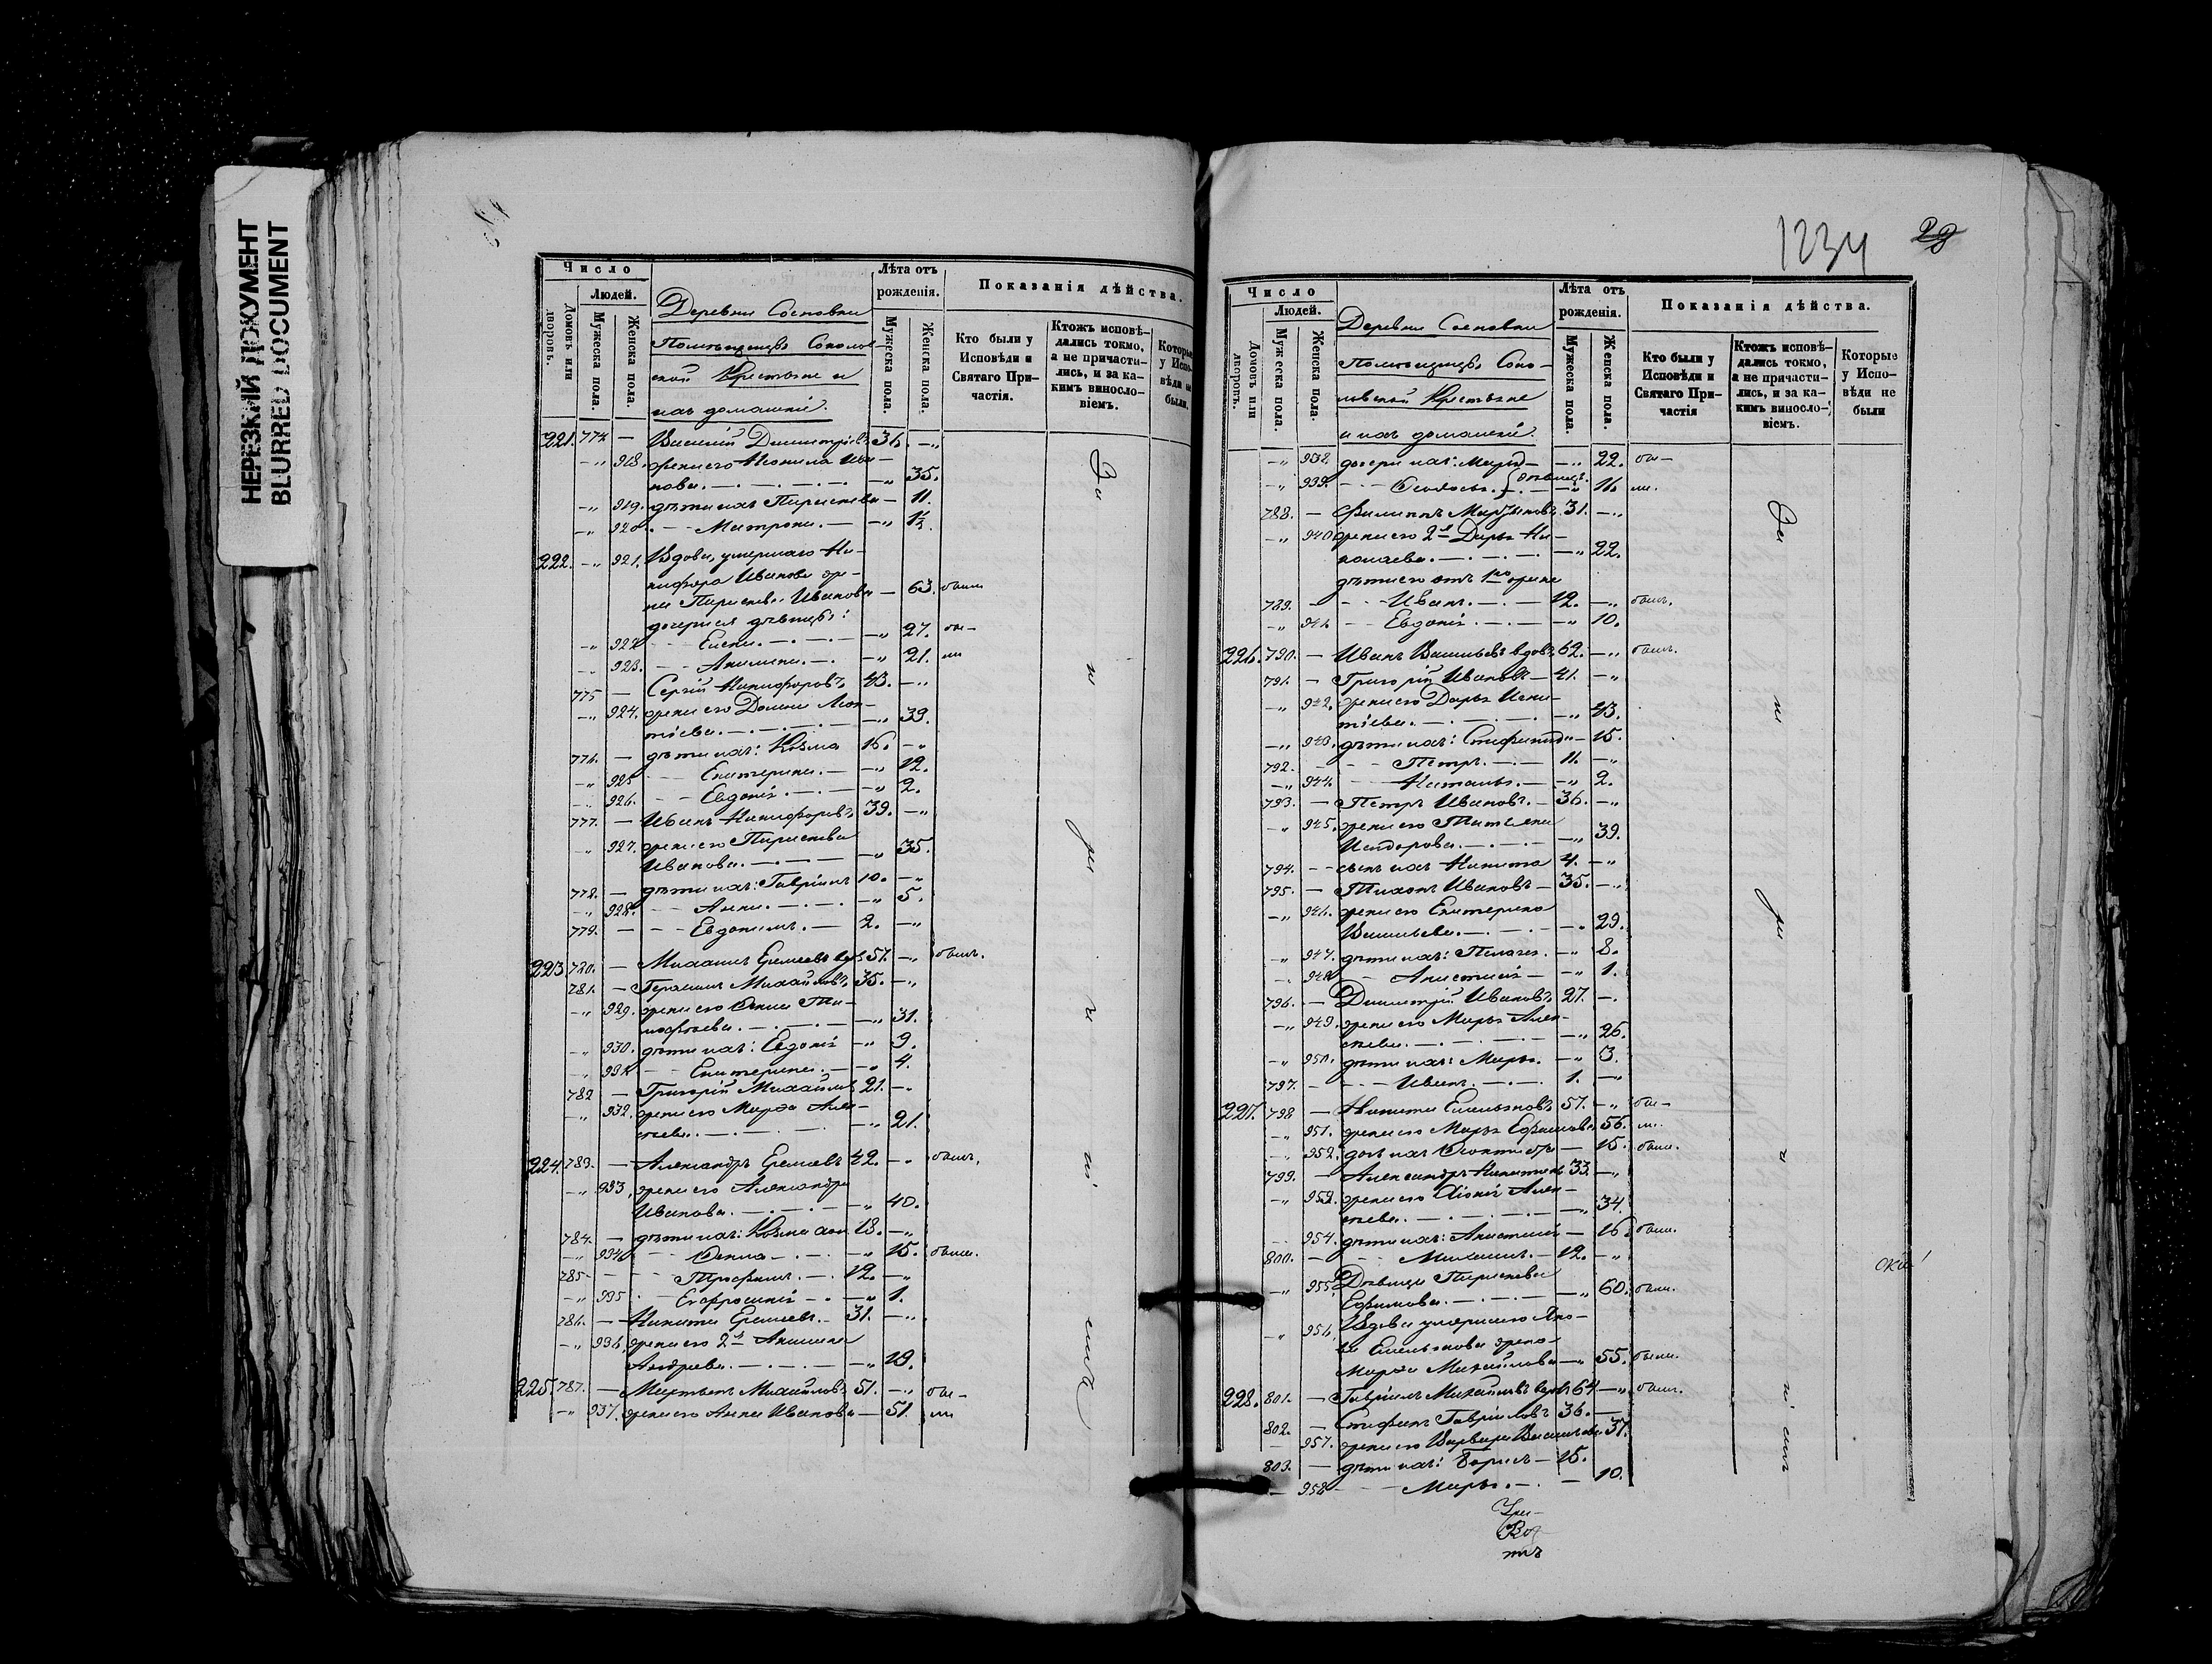 НЕРЕЗКИЙ ДОКУМЕНТ
BLURRED DOCUMENT
Число
Людей.
Домовъ или дворовъ.
Мужеска пола.
Женска пола.
Деревни Сосновки
Помѣщицы Соколов-
ской Крестьяне и
ихъ домашніе.
Лѣта отъ рожденія.
Мужеска пола.
Женска пола.
Показанія дѣйства.
Кто были у Исповѣди и Святаго При-частія.
Ктожъ исповѣ-дались токмо, а не причасти-лись, и за ка-кимъ винословіемъ.
Которые у Испо-вѣди не были.
221. 774. — Василій Димитріевъ 36. —„
—„ 918. жена его Неонила Ива-
нова. —„ 35.
—„ 919. дѣти ихъ Параскева — 11.
—„ 920. Матрона. —„ 1½.
222. —„ 921. Вдова, умершаго Ни-
кифора Иванова же-
на Параскева Иванова — 63. была
дочери ея дѣвицы:
—„ 922. Елена. —„ 27. бы-
923. Акилина. —„ 21. ли
775 — Сергій Никифоровъ 43. —„
—„ 924. жена его Домна Леон-
тіева. —„ 39.
776. — дѣти ихъ: Козма 16. —„
—„ 925 Екатерина. —„ 12.
926. Евдокія. —„ 2.
777. — Иванъ Никифоровъ 39. —„
„ 927. жена его Параскева
Иванова. —„ 35.
778. — дѣти ихъ: Гавріилъ 10. —„
—„ 928. Анна. —„ 5.
779. — Евдокимъ. — 2. —„
223 780. — Михаилъ Еремеевъ вдовъ 57. —„ былъ.
781. — Герасимъ Михайловъ 35. —„
—„ 929. жена его Ѳекла Ти-
мофѣева. —„ 31.
—„ 930. дѣти ихъ: Евдокія —„ 9.
„ 931. Екатерина. —„ 4.
782 — Григорій Михайловъ 21. —„
—„ 932. жена его Марѳа Алек-
сѣева. —„ 21.
224. 783. — Александръ Еремеевъ 42. —„ былъ.
—„ 933. жена его Александра
Иванова. —„ 40.
784. — дѣти ихъ: Козма 18. —„
—„ 934. Ѳекла —„ 15. была.
785 — Трофимъ. — 12. —„
—„ 935 Евфросинія —„ 1.
786. — Никита Еремеевъ. — 31. —„
—„ 936. жена его 2я Акилина
Андреева. —„ 19.
225. 787. — Мартынъ Михайловъ 51. —„ бы-
—„ 937. жена его Анна Ивановa — 51. ли
1234
28
Число
Людей.
Домовъ или дворовъ.
Мужеска пола.
Женска пола.
Деревни Сосновки
Помѣщицы Соко-
ловской Крестьяне
и ихъ домашніе.
Лѣта отъ рожденія.
Мужеска пола.
Женска пола.
Показанія дѣйства.
Кто были у Исповѣди и Святаго При-частія
Ктожъ исповѣ-дались токмо, а не причасти-лись, и за ка-кимъ винословіемъ.
Которые у Испо-вѣди не были
—„ 938. дочери ихъ: Марія —„ 22. бы-
—„ 939. Ѳеодосія. дѣвицы. —„ 16. ли.
788. — Филиппъ Мартыновъ 31. —„
—„ 940 жена его 2я Дарья Ни-
колаева. —„ 22.
дѣти его отъ 1й жены
789. — Иванъ. — 12. —„ былъ.
—„ 941. Евдокія. —„ 10.
226. 790. — Иванъ Васильевъ вдовъ 62. —„ былъ.
791. — Григорій Ивановъ — 41. —„
—„ 942. жена его Дарья Игна-
тіева. —„ 43.
—„ 943. дѣти ихъ: Стефанида — 15.
792. — Петръ. — 11. —„
—„ 944. Наталья. —„ 2.
793. — Петръ Ивановъ. — 36. —„
—„ 945. жена его Татьяна
Исидорова. —„ 39.
794. — сынъ ихъ Никита 4. —„
795. — Тихонъ Ивановъ — 35. —„
—„ 946. жена его Екатерина
Васильева. —„ 29.
„ 947. дѣти ихъ: Пелагея. —„ 8.
„ 948 Анастасія —„ 1.
796. — Димитрій Ивановъ 27. —„
—„ 949. жена его Марья Алек-
сѣева. —„ 26.
—„ 950. дѣти ихъ: Марья. —„ 3.
797. — Иванъ. — 1. —„
227. 798 — Никита Емельяновъ 57. —„ бы-
—„ 951. жена его Марья Ефимова 56. ли.
„ 952. дочь ихъ — 15. была.
799. — Александръ Никитинъ 33. —„
„ 953. жена его Алек-
сѣева. —„ 34.
954. дѣти ихъ: Анастасія — 16. была.
800. — Михаилъ. — 12. —„
—„ 955 Дѣвица Параскева
Ефимова. —„ 60. была.
—„ 956. Вдова умершаго
Емельянова жена
Марѳа Михайлова —„ 55. была.
228. 801. — Гавріилъ Михайловъ вдовъ 64 —„ былъ.
802. — Стефанъ Гавріиловъ 36. —
957. жена его Варвара Васильева 37.
803. — дѣти ихъ: Борисъ — 15.
958 Марья. — 10.